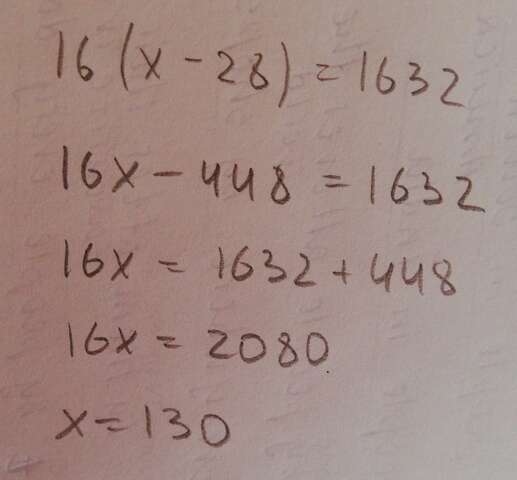 16(x-28)=1632
16x-448=1632
16x=1632+448
16x=2080
x=130